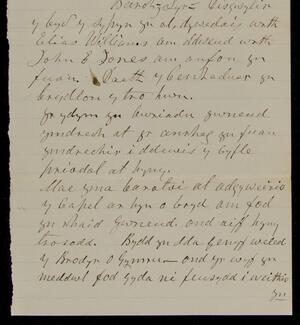 Barchg Syr Disgwylir
y byd y sypyn yn ol, dywedais wrth
Elias Williams am ddweud wrth
John E Jones am anfon yn
fuan. Daeth y Cenhadwr yn
brydlon y tro hwn.
Yr ydym yn bwriadu gwneud
ymdrech at yr anrheg yn fuan
ymdrechir i ddewis y cyfle
priodol at hyny.
Mae yma barotoi at adgyweirio
y Capel ar hyn o bryd am fod
yn rhaid gwneud. ond aiff hyny
trosodd. Bydd yn dda genyf weled
y Brodyr o Gymru ond yr wyf yn
meddwl fod gyda ni feusydd i weithio
yn